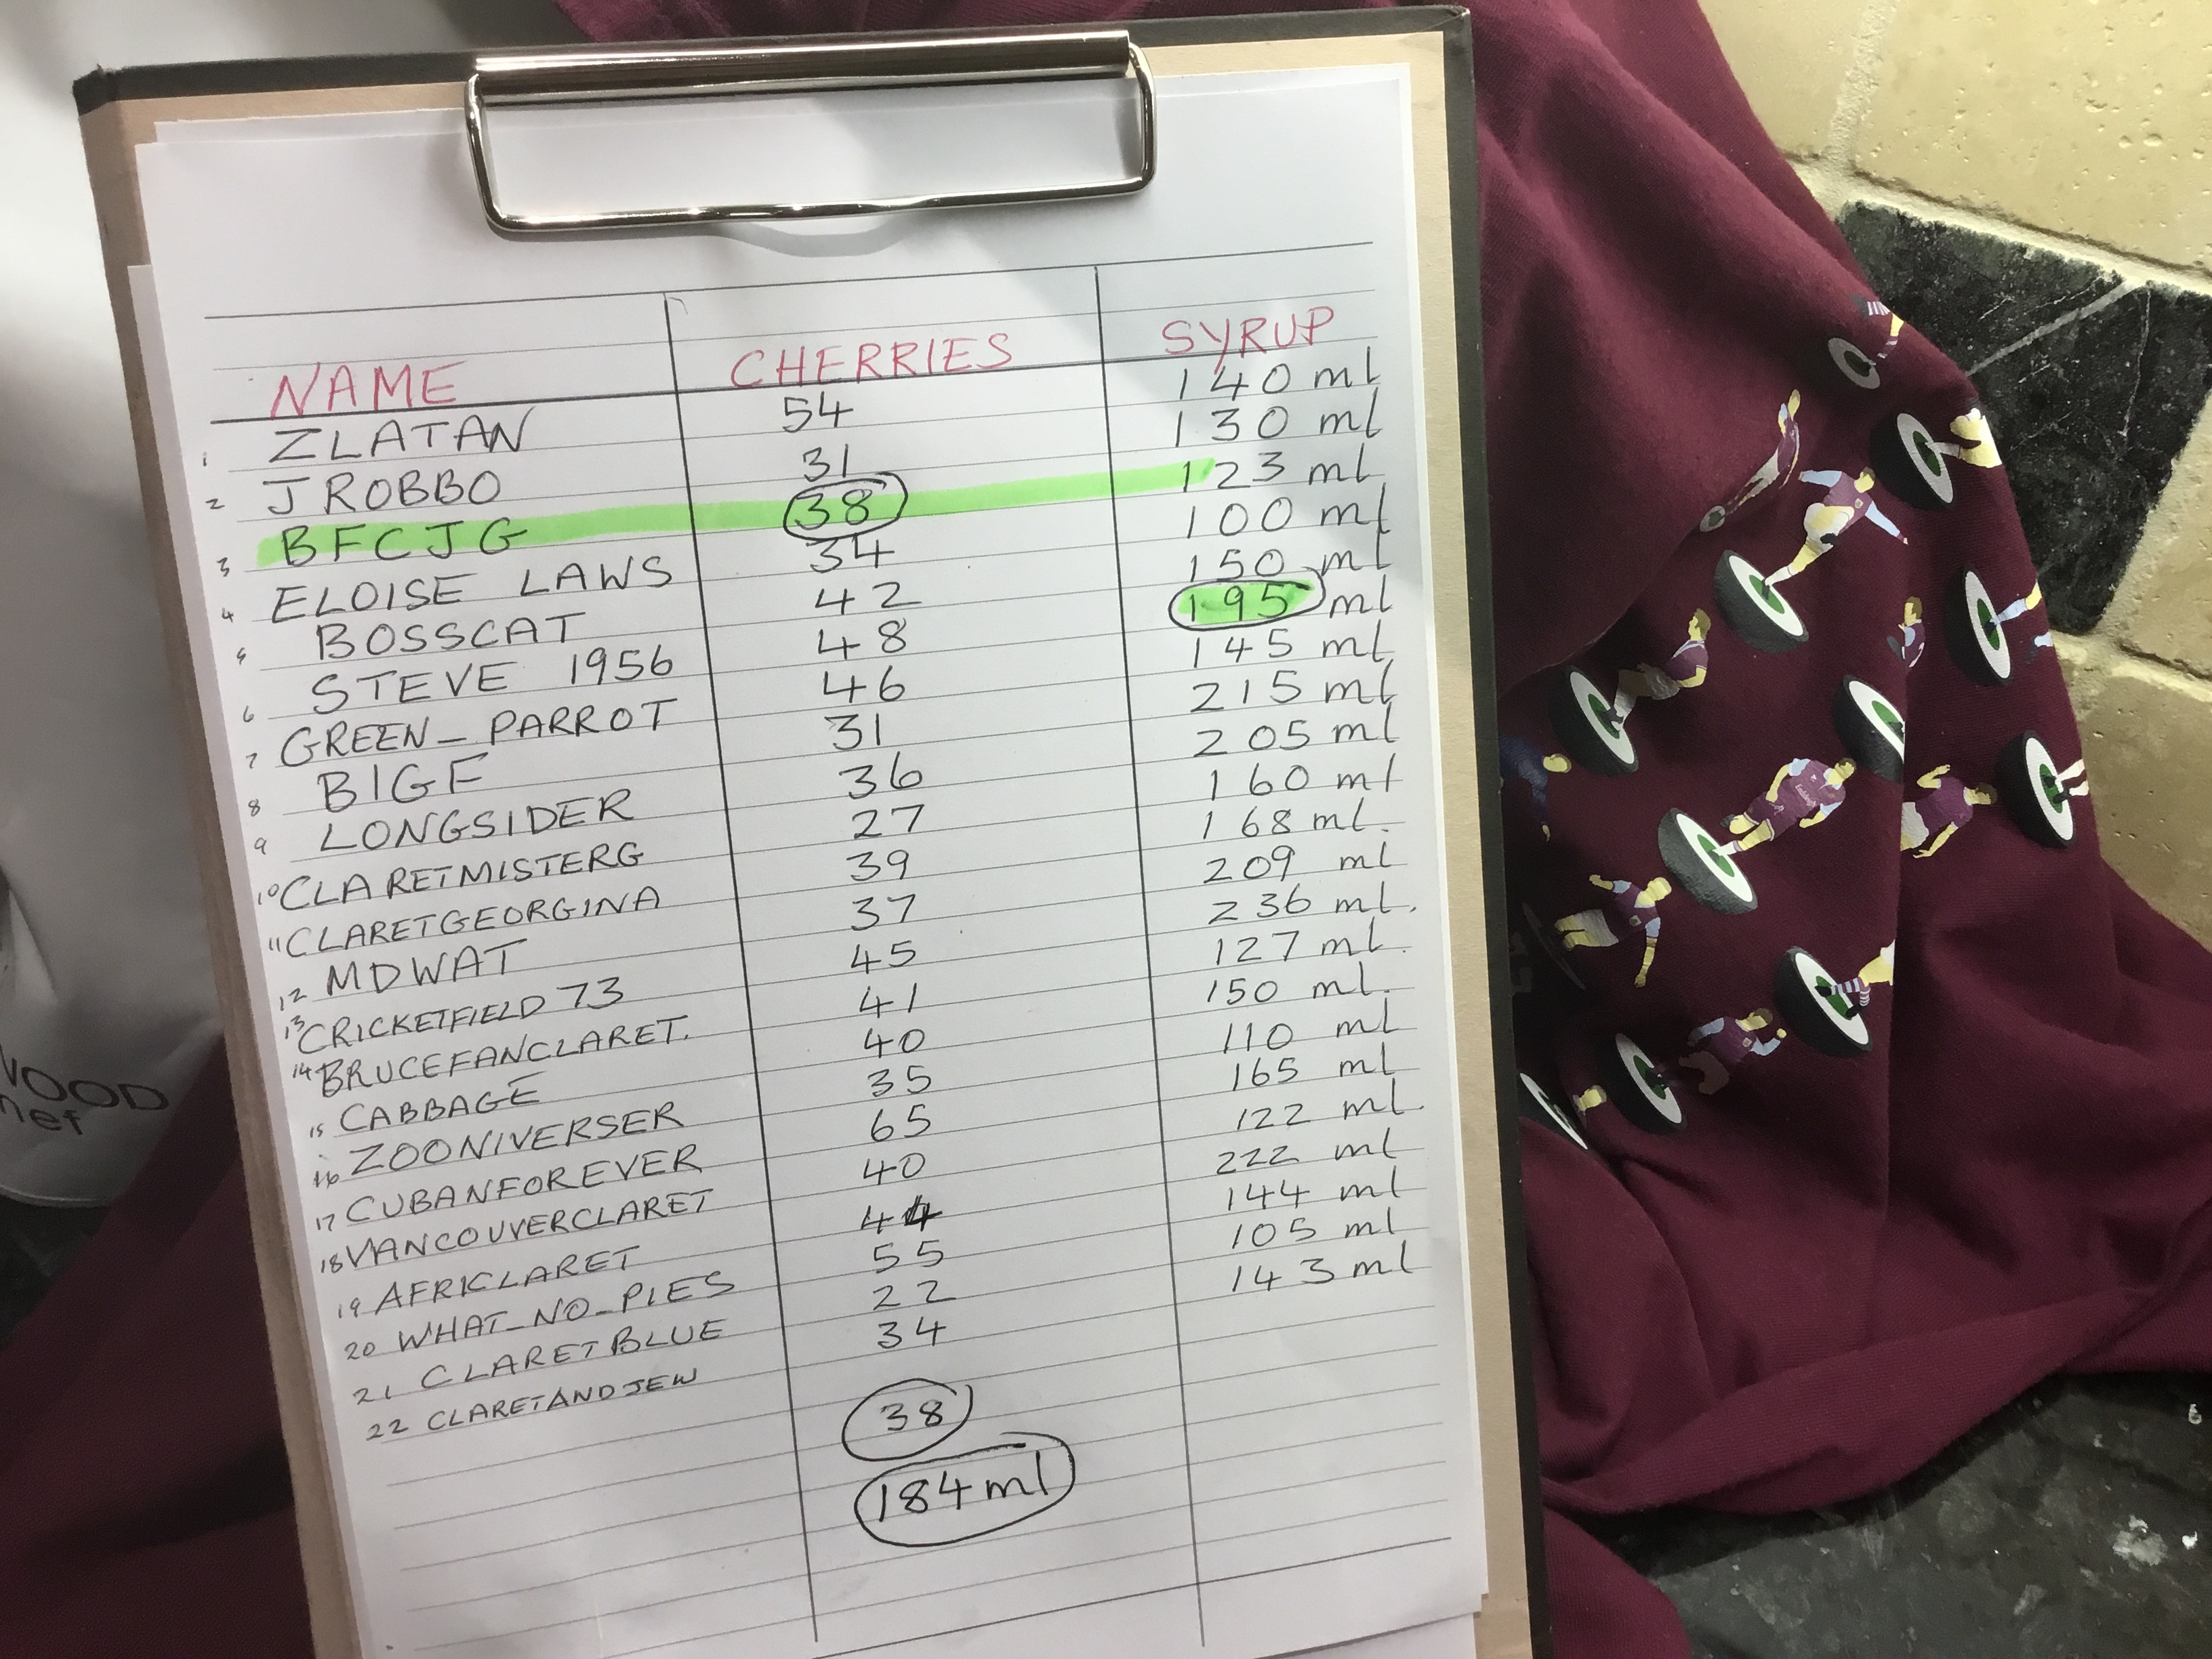 NAME CHERRIES SYRUP
1 ZLATAN 54 140 ml
2 JROBBO 31 130 ml
3 BFCJG 38 123 ml
4 ELOISE LAWS 34 100 ml
5 BOSSCAT 42 150 ml
6 STEVE 1956 48 195 ml
7 GREEN_PARROT 46 145 ml
8 BIGF 31 215 ml
9 LONGSIDER 36 205 ml
10 CLARETMISTERG 27 160 ml
11 CLARETGEORGINA 39 168 ml.
12 MDWAT 37 209 ml
13 CRICKETFIELD 73 45 236 ml.
14 BRUCEFANCLARET. 41 127 ml.
15 CABBAGE 40 150 ml.
16 ZOONIVERSER 35 110 ml
17 CUBANFOREVER 65 165 ml
18 VANCOUVERCLARET 40 122 ml.
19 AFRICLARET 44 222 ml
20 WHAT_NO_PIES 55 144 ml
21 CLARETBLUE 22 105 ml
22 CLARETANDJEW 34 143 ml
38
184 ml